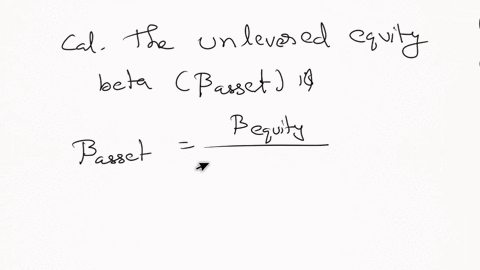 Cal. The unlevered equity
beta (βasset) is
βasset = βequity